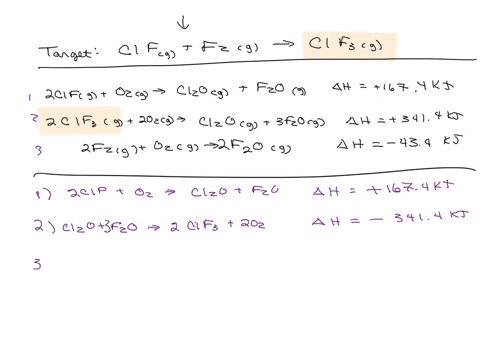 Target: ClF(g) + F2(g) → ClF3(g)
1 2ClF(g) + O2(g) → Cl2O(g) + F2O(g) ΔH = +167.4 KJ
2 2ClF3(g) + 2O2(g) → Cl2O(g) + 3F2O(g) ΔH = +341.4 KJ
3 2F2(g) + O2(g) → 2F2O(g) ΔH = -43.4 KJ
1) 2ClF + O2 → Cl2O + F2O ΔH = +167.4 KJ
2) Cl2O + 3F2O → 2ClF3 + 2O2 ΔH = - 341.4 KJ
3